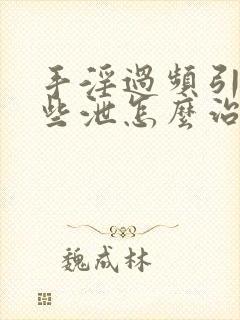 手淫過頻引
些泄怎麼治
魏成林